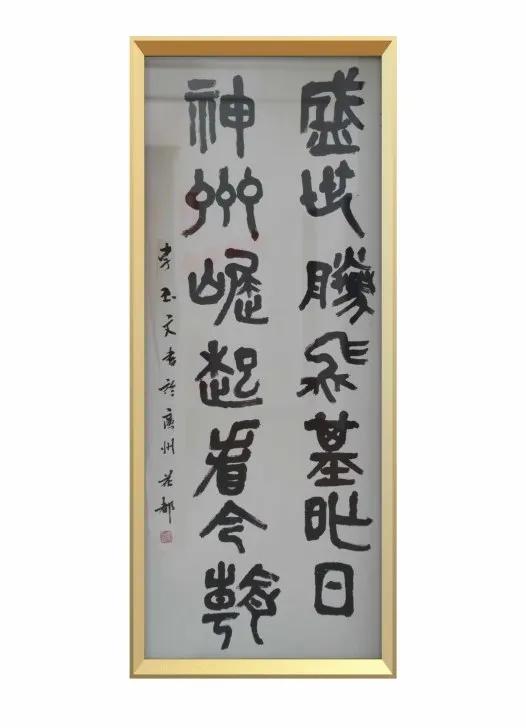 盛世騰飛基昨日
神州崛起看今朝
李玉文書於廣州花都